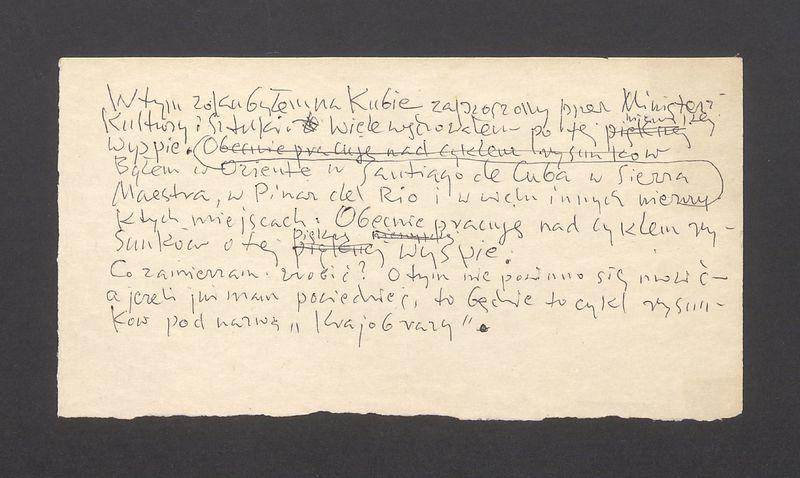 W tym roku byłem na Kubie zaproszony przez Minister-
niezwykłej
Kultury i Sztuki. Wiele wędrowałem po tej pięknej
wyspie. Obecnie pracuję nad cyklem rysunków
Byłem w Oriente w Santiago de Cuba w Sierra
Maestra, w Pinar del Rio i w wielu innych niezwy-
kłych miejscach. Obecnie pracuję nad cyklem ry-
pięknej niezwykłej
sunków o tej pięknej wyspie.
Co zamierzam zrobić? O tym nie powinno się mówić –
a jeżeli już mam powiedzieć, to będzie to cykl rysun-
ków pod nazwą „Krajobrazy".